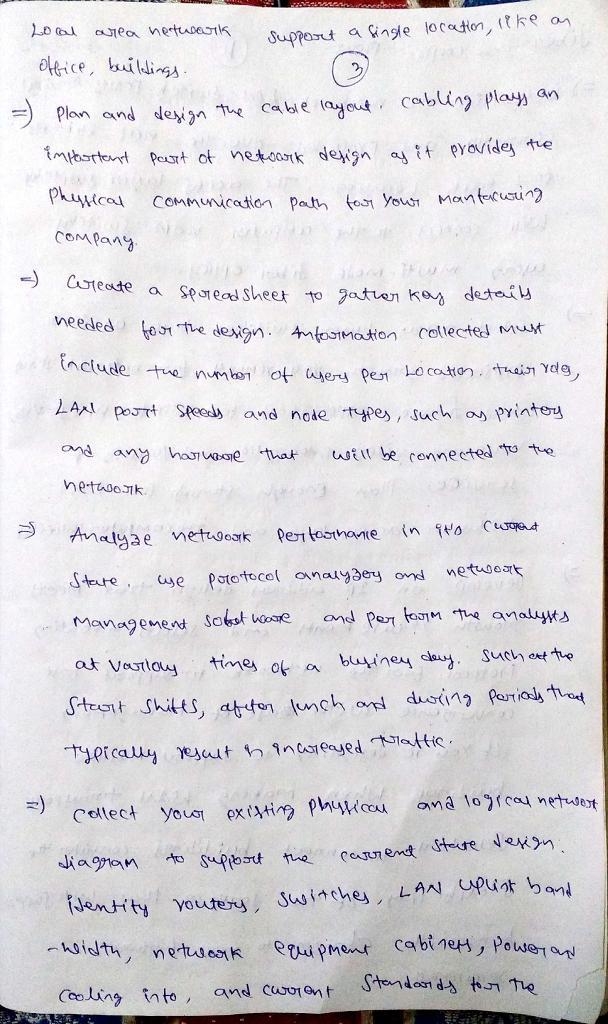 Local area network support a single location, like an
office, buildings.
3
=) Plan and design the cable layout. cabling plays an
important part of network design as it provides the
Physical communication path for your manfacuring
company.
=) Create a spreadsheet to gather key details
needed for the design. Information collected must
include the number of users per Location. their roles,
LAN port speeds and node types, such as printers
and any harware that will be connected to the
network.
=) Analyze network performance in it's current
state. use protocol analyzers and network
management software and perform the analysis
at various times of a business day. such as the
start shifts, after lunch and during periods that
typically result in increased traffic.
=) collect your existing physical and logical network
diagram to support the current state design.
identify routers, switches, LAN uplink band
-width, network equipment cabinets, power and
cooling info, and current standards for the